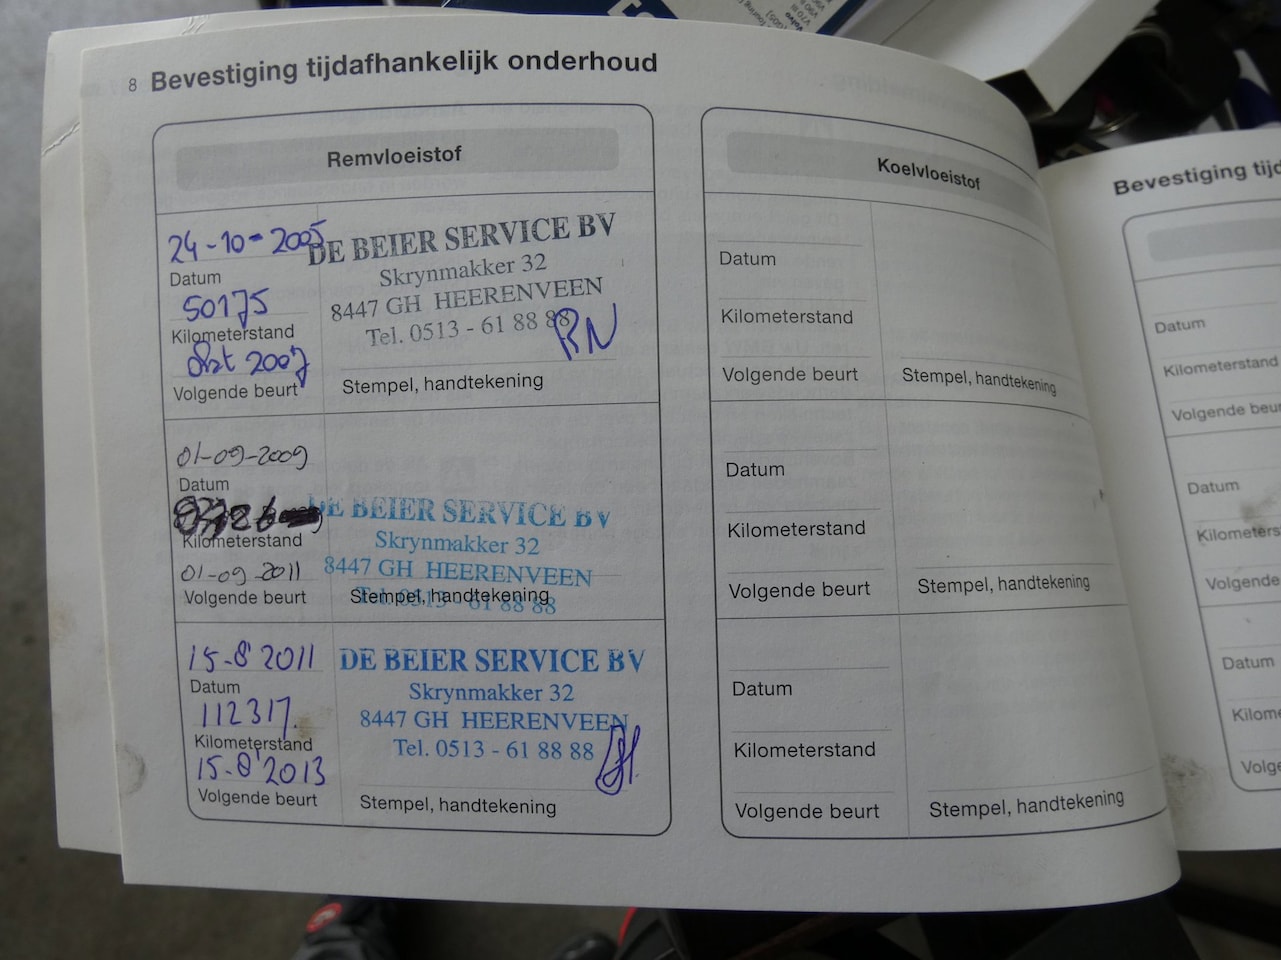 8 Bevestiging tijdafhankelijk onderhoud
Remvloeistof
24-10-2005
Datum
50175
Kilometerstand
okt 2007
Volgende beurt
DE BEIER SERVICE BV
Skrynmakker 32
8447 GH HEERENVEEN
Tel. 0513 - 61 88 88
RN
Stempel, handtekening
01-09-2009
Datum
Kilometerstand
01-09-2011
Volgende beurt
DE BEIER SERVICE BV
Skrynmakker 32
8447 GH HEERENVEEN
Tel. 0513 - 61 88 88
Stempel, handtekening
15-8'2011
Datum
112317.
Kilometerstand
15-8'2013
Volgende beurt
DE BEIER SERVICE BV
Skrynmakker 32
8447 GH HEERENVEEN
Tel. 0513 - 61 88 88
Stempel, handtekening
Koelvloeistof
Datum
Kilometerstand
Volgende beurt
Stempel, handtekening
Datum
Kilometerstand
Volgende beurt
Stempel, handtekening
Datum
Kilometerstand
Volgende beurt
Stempel, handtekening
Bevestiging tijd
Datum
Kilometerstand
Volgende beur
Datum
Kilometers
Volgende
Datum
Kilome
Volge